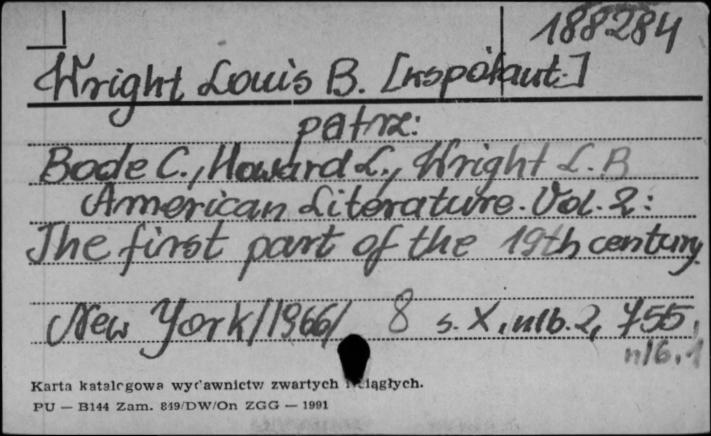 188284
Wright Louis B. [współaut.]
patrz:
Bode C., Howard L., Wright L. B
American Literature. Vol. 2:
The first part of the 19th century
New York /1966/ 8 s. X, nlb. 2, 755,
nlb. 1
Karta katalogowa wydawnictw zwartych i ciągłych.
PU — B144 Zam. 849/DW/On ZGG — 1991